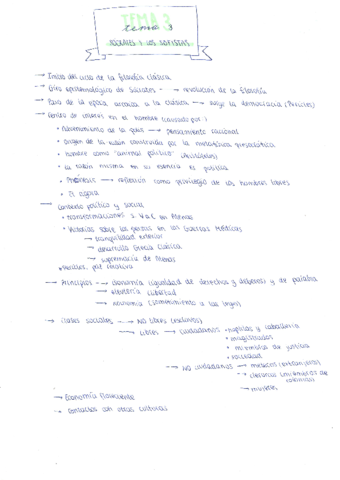 TEMA 3
tema 3
SÓCRATES Y LOS SOFISTAS
→ Inicio del ciclo de la filosofía clásica
→ Giro epistemológico de Sócrates → revolución de la filosofía
→ Paso de la época arcaica a la clásica → surge la democracia (Pericles)
→ Centro de interés en el hombre (causado por:)
• Nacimiento de la polis → pensamiento racional
• origen de la razón construida por la metafísica presocrática
• hombre como "animal político" (Aristóteles)
• la razón misma en su esencia es política
• reflexión como privilegio de los hombres libres
• El ágora
→ Contexto político y social
• transformaciones s. V a.C en Atenas
• Victorias sobre los persas en las Guerras Médicas
→ tranquilidad exterior
→ desarrollo Grecia Clásica
→ supremacía de Atenas
• Pericles,
→ Principios → isonomía (igualdad de derechos y deberes) y de palabra
→ eleutería (libertad
→ (sometimiento a las leyes)
→ Clases sociales → No libres (esclavos)
→ Libres → Ciudadanos • hoplitas y caballería
• magistrados
• miembros de justicia
• sociedad
→ No ciudadanos → metecos (extranjeros)
→ clerucos (miembros de colonias)
→ mujeres
→ Economía floreciente
→ contactos con otras culturas